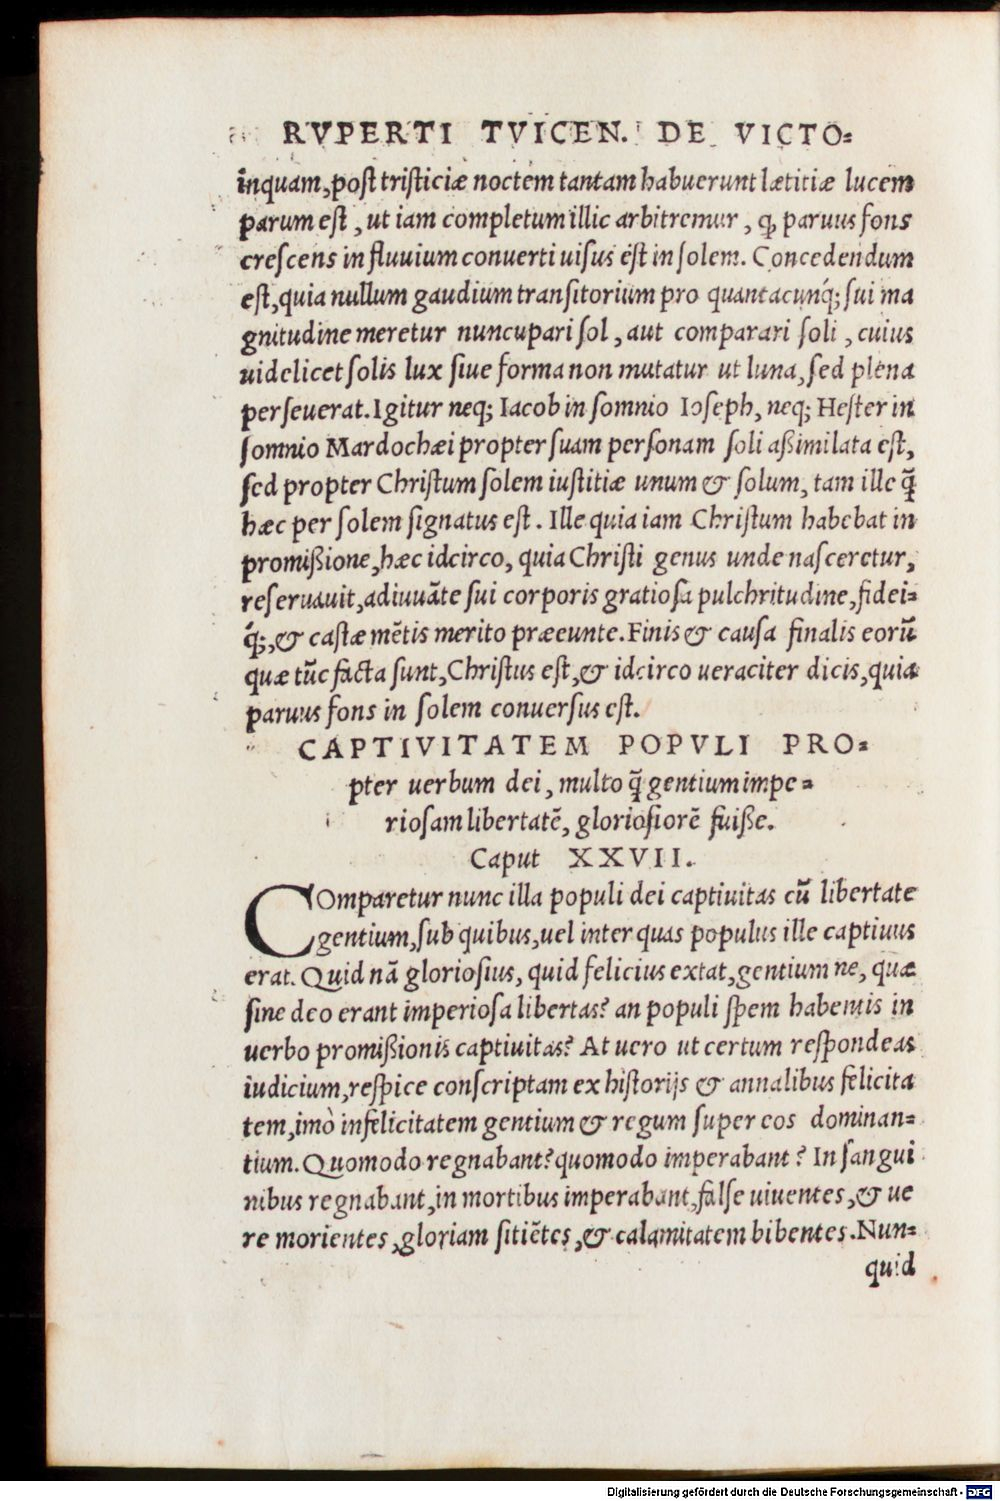 RVPERTI TVICEN. DE VICTO=
inquam, post tristiciæ noctem tantam habuerunt lætitiæ lucem
parum est, ut iam completum illic arbitremur, ꝙ paruus fons
crescens in fluuium conuerti uisus est in solem. Concedendum
est, quia nullum gaudium transitorium pro quantacunq́; sui ma
gnitudine meretur nuncupari sol, aut comparari soli, cuius
uidelicet solis lux siue forma non mutatur ut luna, sed plena
perseuerat. Igitur neq; Iacob in somnio Ioseph, neq; Hester in
somnio Mardochæi propter suam personam soli aßimilata est,
sed propter Christum solem iustitiæ unum & solum, tam ille q̃
hæc per solem signatus est. Ille quia iam Christum habebat in
promißione, hæc idcirco, quia Christi genus unde nasceretur,
reseruauit, adiuuãte sui corporis gratiosa pulchritudine, fidei=
q́;, & castæ mẽtis merito præeunte. Finis & causa finalis eorũ
quæ tũc facta sunt, Christus est, & idcirco ueraciter dicis, quia
paruus fons in solem conuersus est.
CAPTIVITATEM POPVLI PRO=
pter uerbum dei, multo q̃ gentium impe=
riosam libertatẽ, gloriosiorẽ fuiße.
Caput XXVII.
COmparetur nunc illa populi dei captiuitas cũ libertate
gentium, sub quibus, uel inter quas populus ille captiuus
erat. Quid nã gloriosius, quid felicius extat, gentium ne, quæ
sine deo erant imperiosa libertas? an populi spem habentis in
uerbo promißionis captiuitas? At uero ut certum respondeas
iudicium, respice conscriptam ex historijs & annalibus felicita
tem, imò infelicitatem gentium & regum super eos dominan=
tium. Quomodo regnabant? quomodo imperabant? In sangui
nibus regnabant, in mortibus imperabant, false uiuentes, & ue
re morientes, gloriam sitiẽtes, & calamitatem bibentes. Nun=
quid
Digitalisierung gefördert durch die Deutsche Forschungsgemeinschaft - DFG